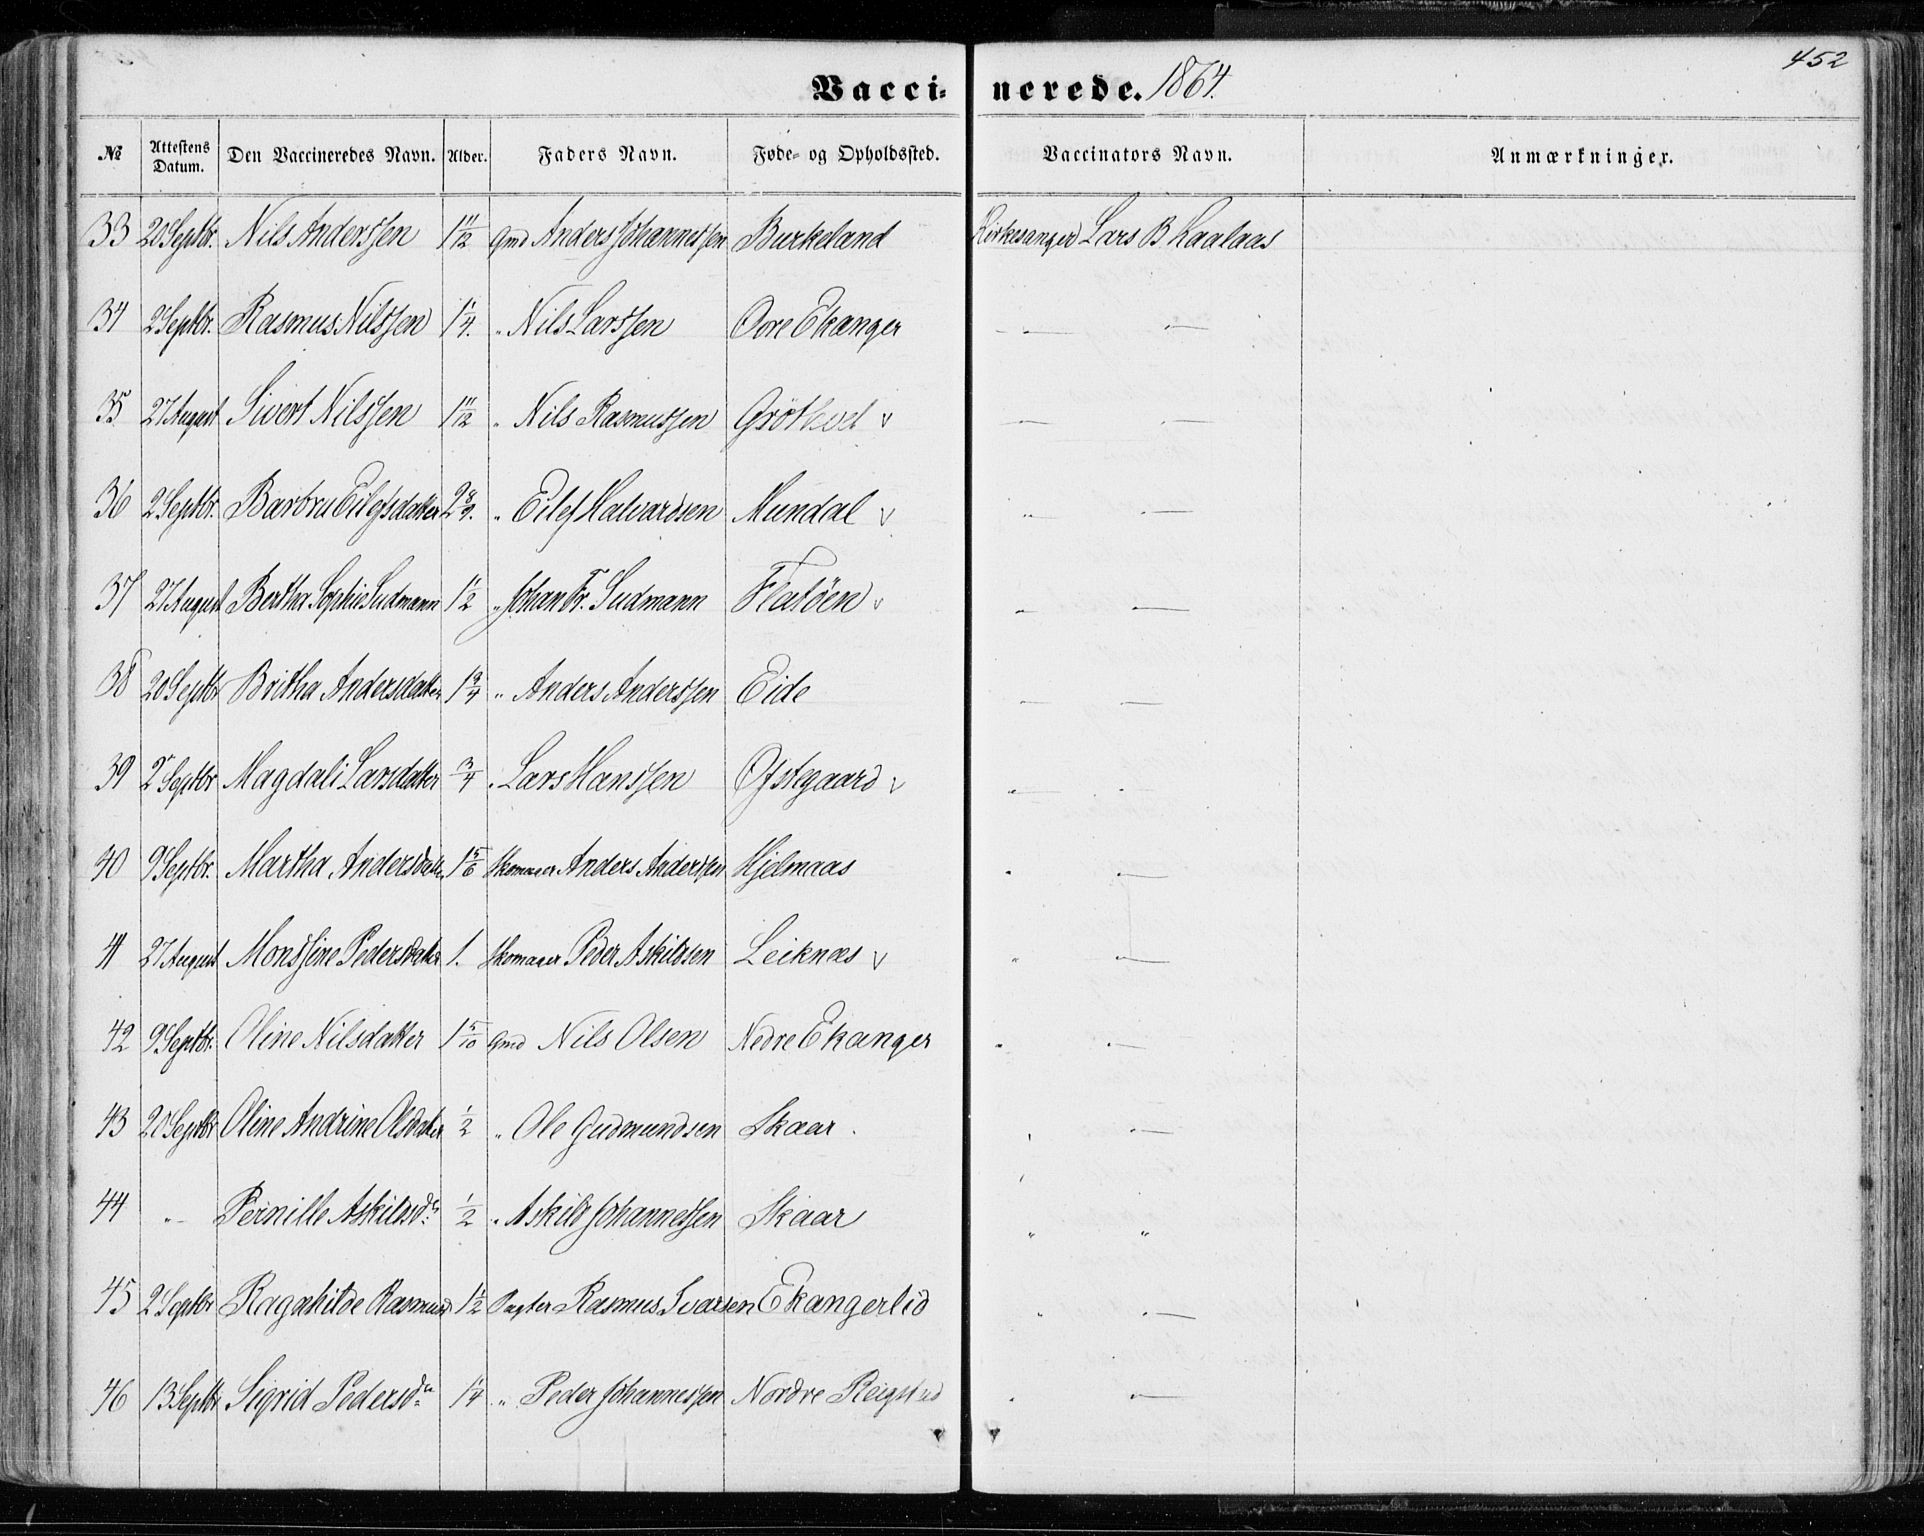 452
Vacci- nerede. 1864.
№ Attestens Datum. Den Vaccineredes Navn. Alder. Faders Navn. Føde- og Opholdssted. Vaccinators Navn. Anmærkninger.
33 20 Septbr. Nils Anderssen 1 11/12 Gmd Anders Johannessen Burkeland Kirkesanger Lars B Kaalaas
34 2 Septbr. Rasmus Nilssen 1 1/4. " Nils Larssen Øvre Ekanger — —
35 27 August Sivert Nilssen 1 11/12 " Nils Rasmussen v — —
36 2 Septbr. Barbru Eilefsdatter 2 " Eilef Halvardsen Mundal v " —
37 27 August Bertha Sophie Sudmann 1 1/2 " Johan Fr. Sudmann Flatöen v " —
38 20 Septbr Britha Andersdatter 1 3/4 " Anders Anderssen Eide — —
39 2 Septbr Magdali Larsdatter 3/4 " Lars Hanssen Ofstegaard v " —
40 9 Septbr. Martha Andersdatter 1 5/6 Skomager Anders Anderssen Hjelmaas " —
41 27 August Monssine Pedersdatter 1. Skomager Peder Askildsen Leiknæs v " —
42 9 Septbr. Oline Nilsdatter 1 5/10 Gmd Nils Olsen Nedre Ekanger " —
43 20 Septbr Oline Andrine Olsdatter 1/2 " Ole Gudmundsen Skaar. " —
44 " Pernille Askildsdr 1/2 " Askild Johannessen Skaar " "
45 2 Septbr Ragnhilde Rasmusd 1 1/2 Pagter Rasmus Ivarsen Ekangerlid " —
46 13 Septbr Sigrid Pedersdr 1 1/4 " Peder Johannessen Nordre Reigstad " —